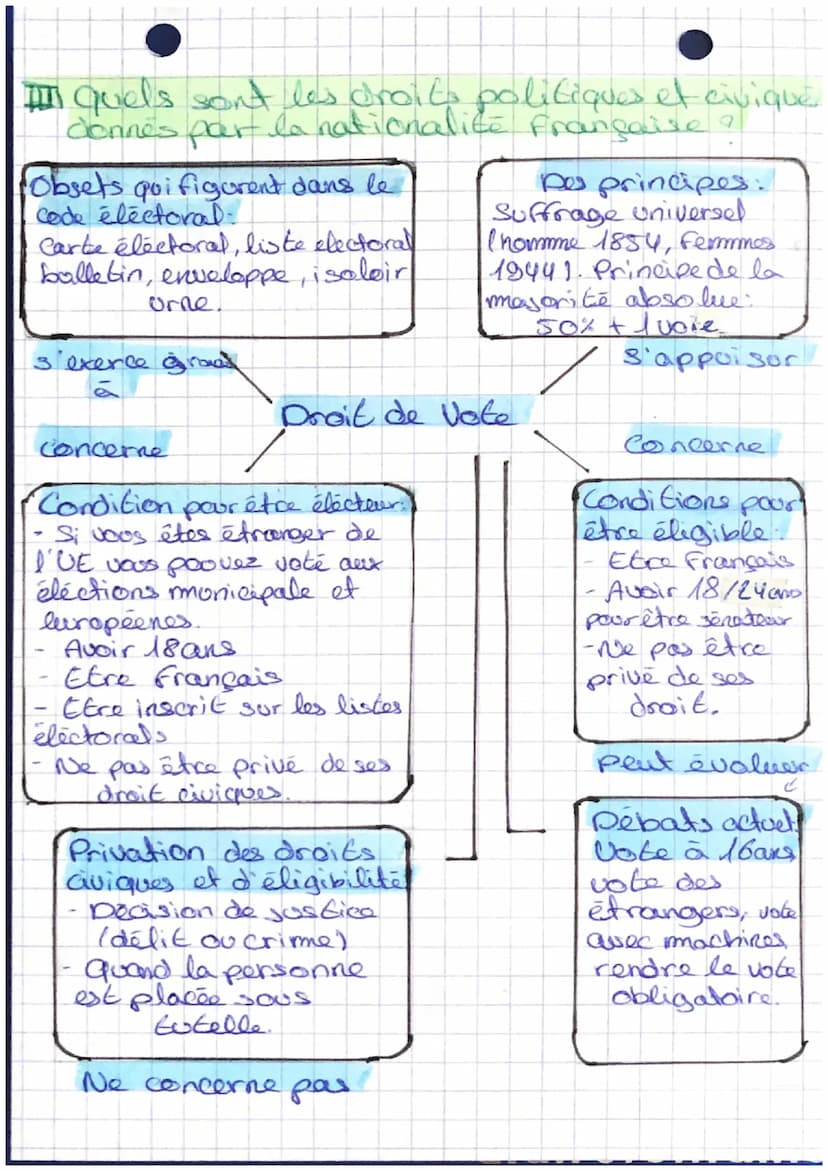 III Quels sont les droits politiques et civique
donnés par la nationalité française ?
Objets qui figurent dans le
code éléctoral:
Carte éléctoral, liste electoral
balletin, enveloppe, isoloir
urne.
Des principes:
Suffrage universel
(hommme 1854, femmmes
1944). Principe de la
majorité absolue:
50% + 1 voie
s'exerce grace
à
s'appui sor
Droit de Vote
concerne
Concerne
Condition pour être élécteur:
- Si vous êtes étranger de
l'UE vous pouvez voté aux
éléctions municipale et
européenes.
- Avoir 18 ans
- Etre français
- Etre inscrit sur les listes
éléctorals
- Ne pas être privé de ses
droit civiques.
Conditions pour
être éligible:
- Etre français
- Avoir 18/24 ans
pour être sénateur
- Ne pas être
privé de ses
droit.
Peut évoluer
Privation des droits
civiques et d'éligibilité
- Décision de justice
(délit ou crime)
- Quand la personne
est placée sous
tutelle.
Ne concerne pas
Débats actuel:
Vote à 16 ans
vote des
étrangers, vote
avec machines
rendre le vote
obligatoire.